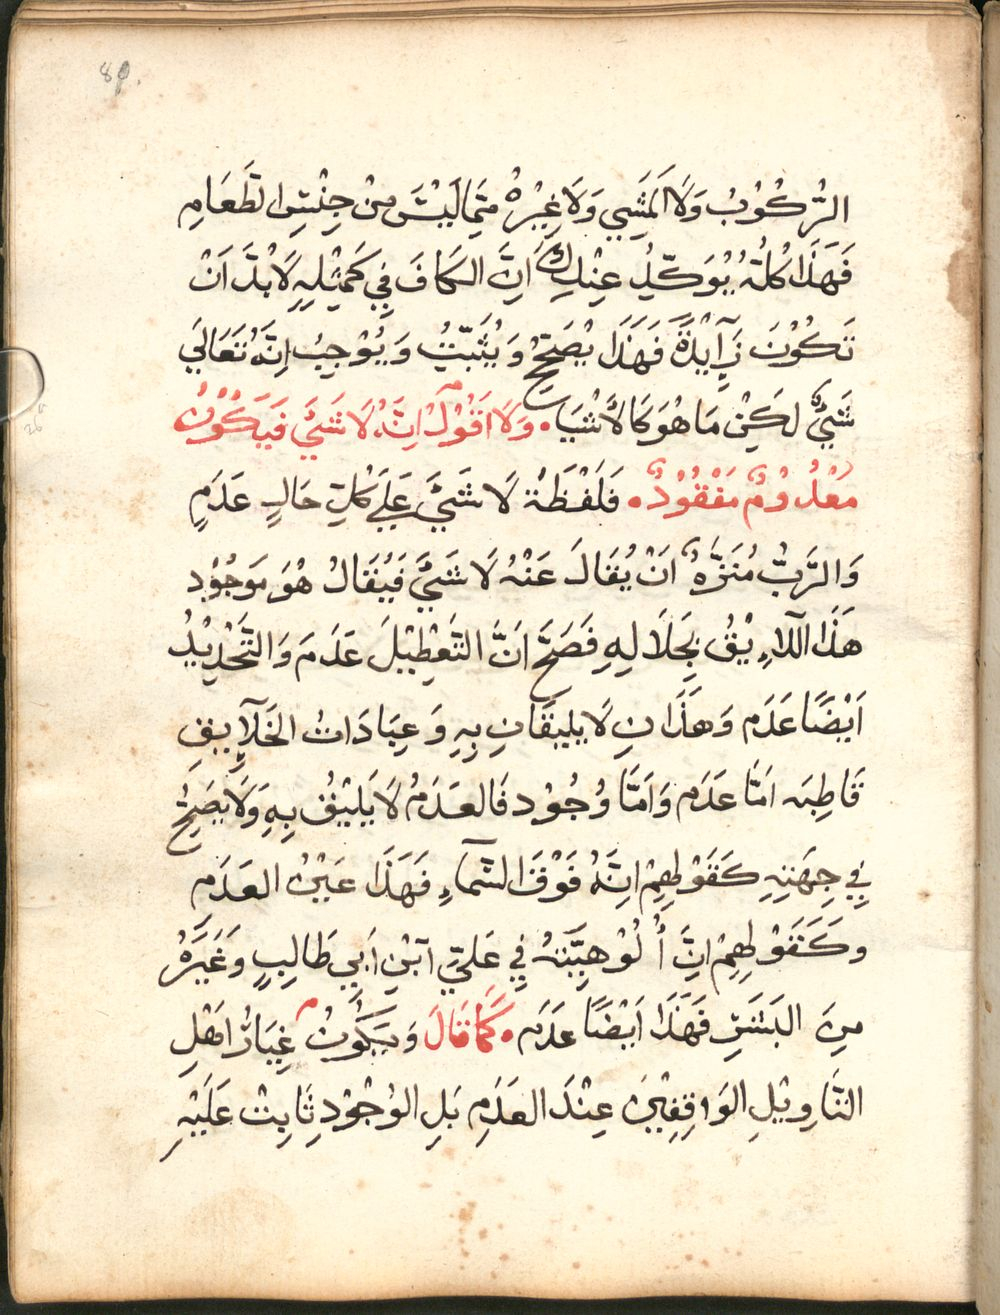 89.
الرُّكُوْبُ وَلَا اَلمَشِي وَلَا غَيْرُهُ مِمَّا لَيْسَ مِنْ جِنْسِ الطَّعَامِ
فَهَذَا كُلُّهُ يُوَكِّدُ عِنْدِكَ اِنَّ الكَافَ فِي كَمِثْلِهِ لَابُدَّ اَنْ
تَكُوْنَ زَآيِدَةً فَهَذَا يُصَحِّحُ وَيُثَبِّتُ وَيُوْجِبُ اِنَّهُ تَعَالَى
شَيْءٌ لَكِنْ مَا هُوَ كَالأَشْيَا. وَلَا اَقُوْلُ اِنَّهُ لَا شَيْ فَيَكُوْنُ
مَعْدُوْمٌ مَفْقُوْدٌ. فَلَفْظَةُ لَا شَيْ عَلَى كُلِّ حَالٍ عَدَمٍ
وَالرَّبُّ مُنَزَّهٌ اَنْ يُقَالَ عَنْهُ لَا شَيْ فَيُقَالُ هُوَ مَوْجُوْد
هَذَا اللَّايِقُ بِجَلَالِهِ فَصَحَّ اَنَّ التَّعْطِيْلَ عَدَمَ وَالتَّحْدِيْدُ
اَيْضًا عَدَم وَهَذَانِ لَا يليقَانِ بِهِ وَعِبَادَات الخَلَآيِقِ
قَاطِبَه اَمَّا عَدَم وَاَمَّا وُجُوْد فَالعَدَمُ لَا يَلِيْقُ بِهِ وَلَا يَصِحُّ
فِي جِهَتِهِ كَقَوْلِهِمْ اِنَّهُ فَوْقَ السَّمآءِ فَهَذَا عَيْنُ العَدَم
وَكَقَوْلِهِمْ اِنَّ أُلُوْهِيَّتَهُ فِي عَلِيِّ اَبْنِ اَبِي طَالِبٍ وَغَيْرَهُ
مِنَ البَشَرِ فَهَذَا اَيْضًا عَدَم. كَمَا قَالَ وَيَكُوْنُ غِيَارُ اَهْلِ
التَّاوِيْلِ الوَاقِفِيْنَ عِنْدَ العَدَمِ بَلِ الوُجُوْدِ ثَابِتْ عَلَيْهِ